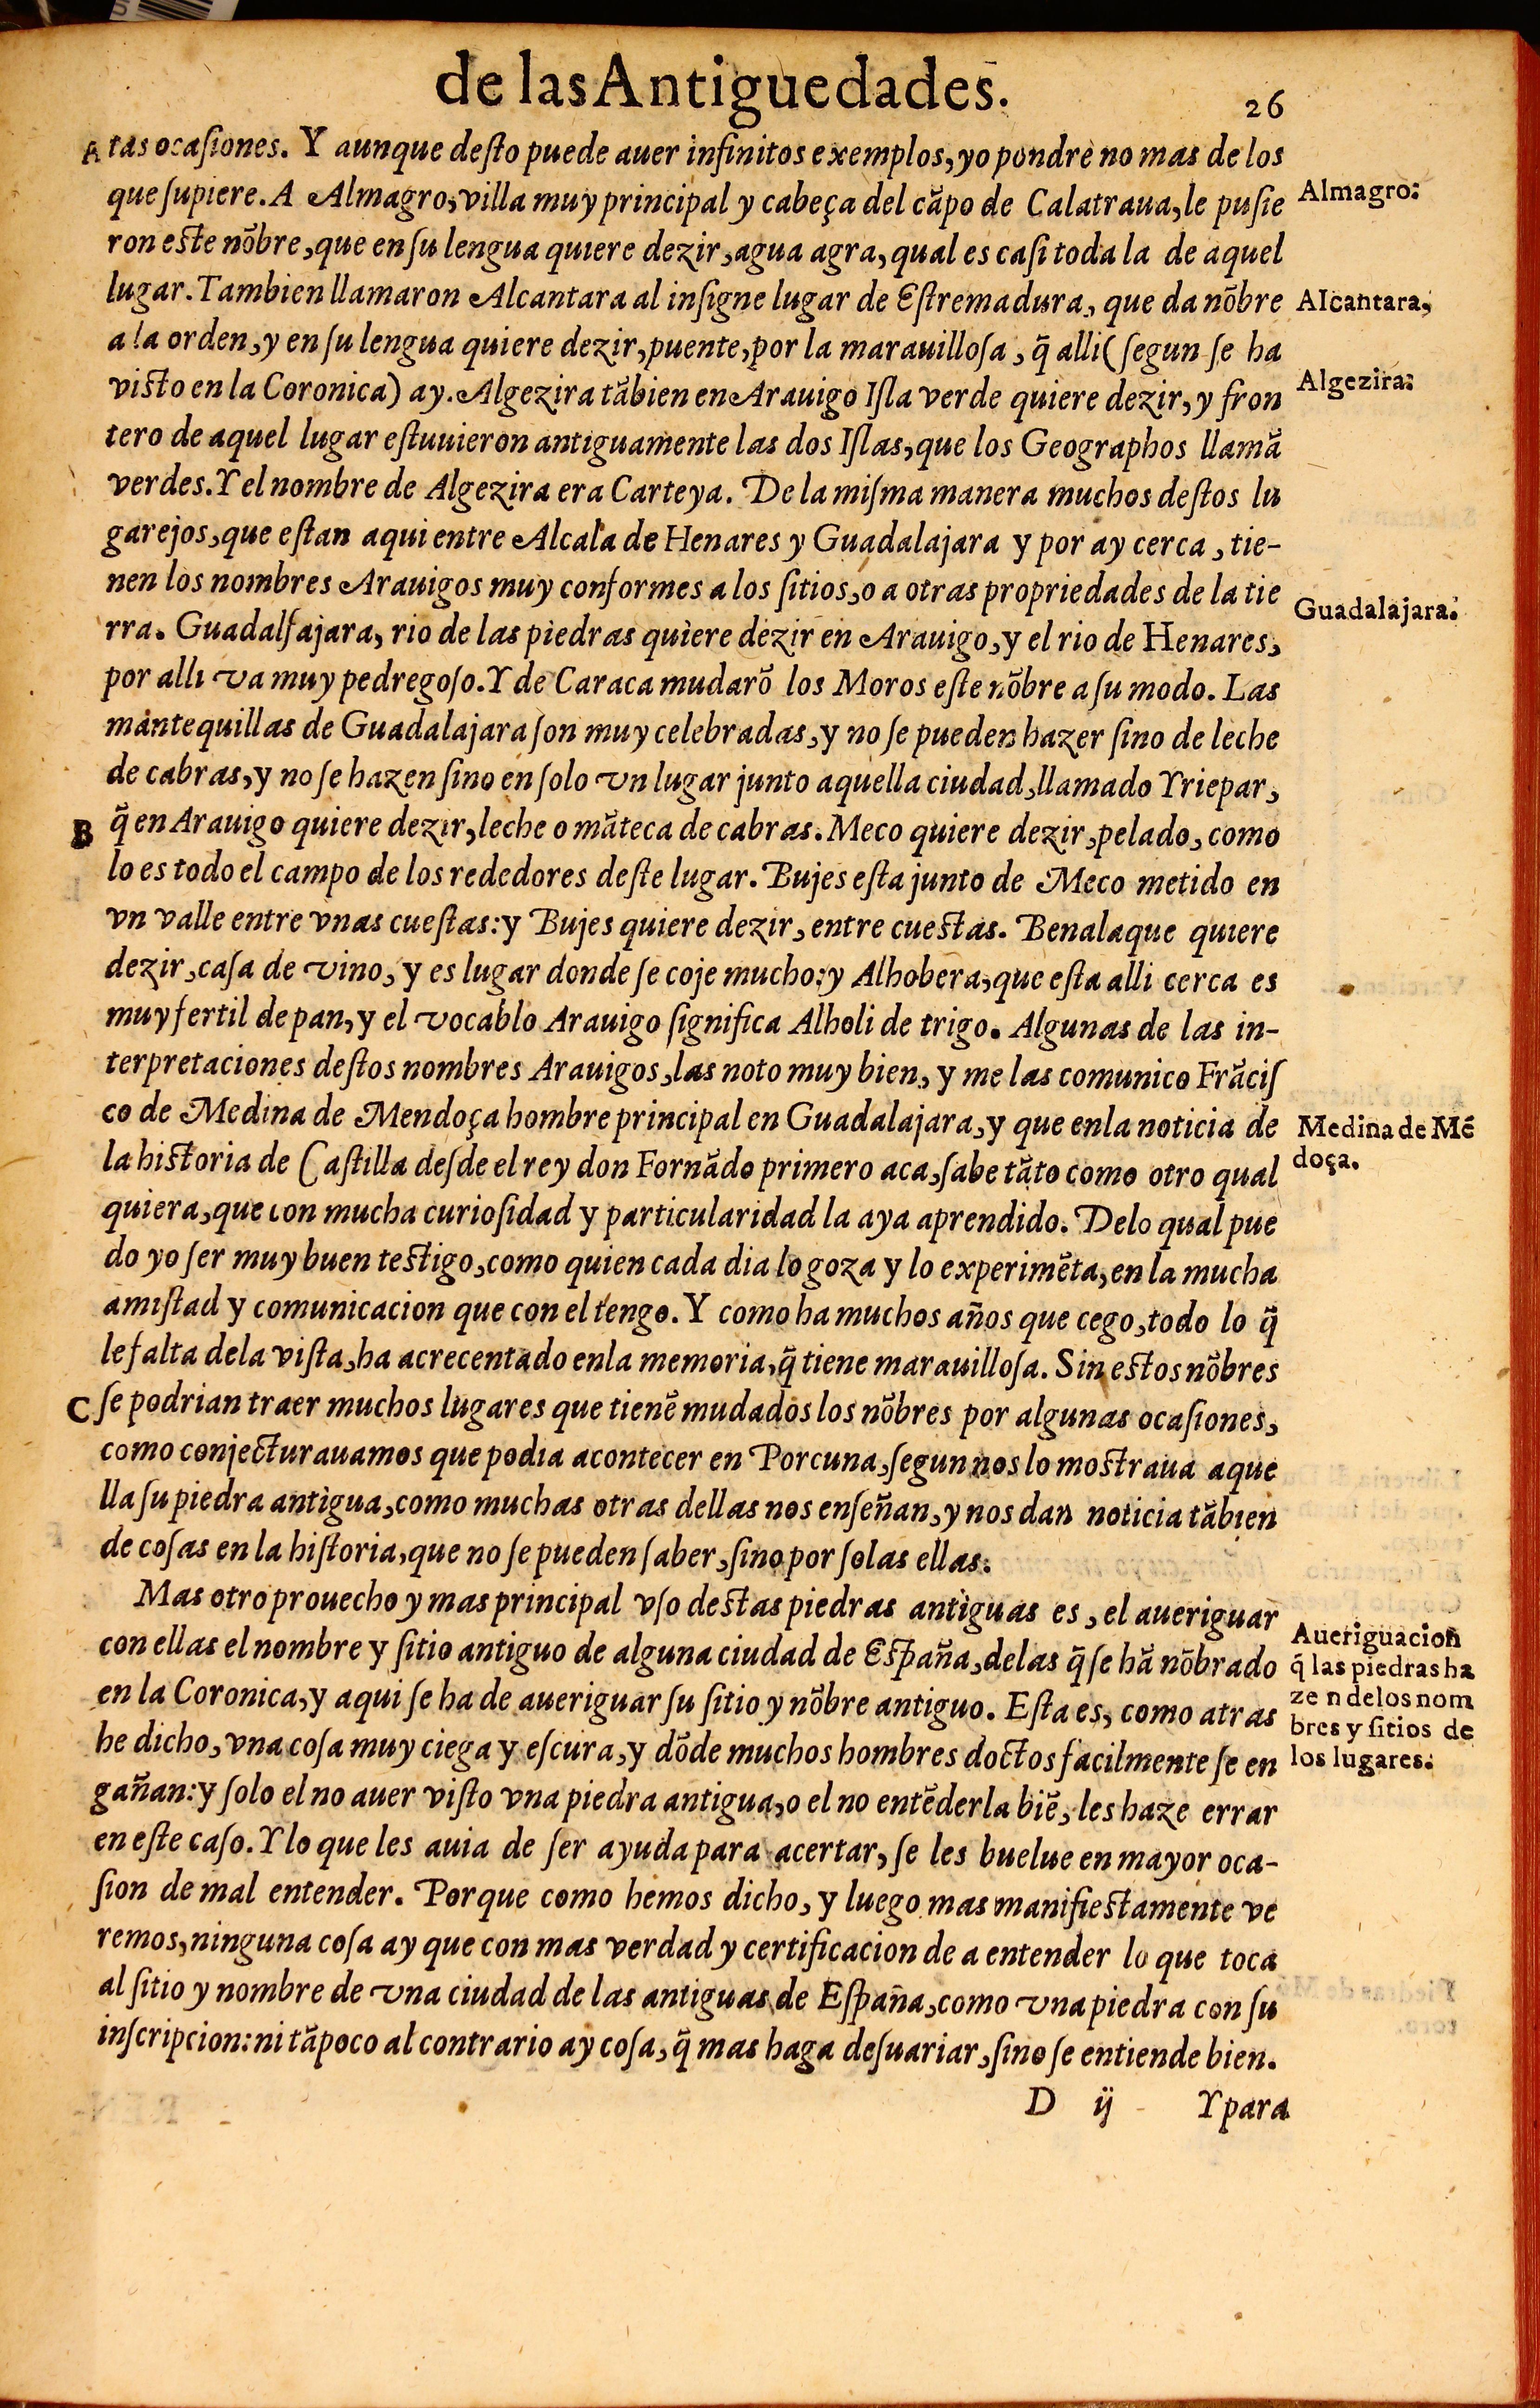 de las Antiguedades.
26
A tas ocaſiones. Y aunque deſto puede auer infinitos exemplos, yo pondre no mas de los
que ſupiere. A Almagro, villa muy principal y cabeça del cãpo de Calatraua, le puſie
Almagro:
ron eſte nõbre, que en ſu lengua quiere dezir, agua agra, qual es caſi toda la de aquel
lugar. Tambien llamaron Alcantara al inſigne lugar de Eſtremadura, que da nõbre
Alcantara,
a la orden, y en ſu lengua quiere dezir, puente, por la marauilloſa, q̃ alli (ſegun ſe ha
viſto en la Coronica) ay. Algezira tãbien en Arauigo Iſla verde quiere dezir, y fron
Algezira:
tero de aquel lugar eſtuuieron antiguamente las dos Iſlas, que los Geographos llamã
verdes. Y el nombre de Algezira era Carteya. De la miſma manera muchos deſtos lu
garejos, que eſtan aqui entre Alcala de Henares y Guadalajara y por ay cerca, tie-
nen los nombres Arauigos muy conformes a los ſitios, o a otras propriedades de la tie
Guadalajara:
rra. Guadalfajara, rio de las piedras quiere dezir en Arauigo, y el rio de Henares,
por alli va muy pedregoſo. Y de Caraca mudarõ los Moros eſte nõbre a ſu modo. Las
mantequillas de Guadalajara ſon muy celebradas, y no ſe pueden hazer ſino de leche
de cabras, y no ſe hazen ſino en ſolo vn lugar junto aquella ciudad, llamado Yriepar,
B q̃ en Arauigo quiere dezir, leche o mãteca de cabras. Meco quiere dezir, pelado, como
lo es todo el campo de los rededores deſte lugar. Bujes eſta junto de Meco metido en
vn valle entre vnas cueſtas: y Bujes quiere dezir, entre cueſtas. Benalaque quiere
dezir, caſa de vino, y es lugar donde ſe coje mucho: y Alhobera, que eſta alli cerca es
muy fertil de pan, y el vocablo Arauigo ſignifica Alholi de trigo. Algunas de las in-
terpretaciones deſtos nombres Arauigos, las noto muy bien, y me las comunico Frãciſ
co de Medina de Mendoça hombre principal en Guadalajara, y que enla noticia de
Medina de Mẽ
doça.
la hiſtoria de Caſtilla deſde el rey don Fornãdo primero aca, ſabe tãto como otro qual
quiera, que con mucha curioſidad y particularidad la aya aprendido. Delo qual pue
do yo ſer muy buen teſtigo, como quien cada dia lo goza y lo experimẽta, en la mucha
amiſtad y comunicacion que con el tengo. Y como ha muchos años que cego, todo lo q̃
le falta dela viſta, ha acrecentado enla memoria, q̃ tiene marauilloſa. Sin eſtos nõbres
C ſe podrian traer muchos lugares que tienẽ mudados los nõbres por algunas ocaſiones,
como conjecturauamos que podia acontecer en Porcuna, ſegun nos lo moſtraua aque
lla ſu piedra antigua, como muchas otras dellas nos enſeñan, y nos dan noticia tãbien
de coſas en la hiſtoria, que no ſe pueden ſaber, ſino por ſolas ellas.
Mas otro prouecho y mas principal vſo deſtas piedras antiguas es, el aueriguar
con ellas el nombre y ſitio antiguo de alguna ciudad de Eſpaña, delas q̃ ſe hã nõbrado
en la Coronica, y aqui ſe ha de aueriguar ſu ſitio y nõbre antiguo. Eſta es, como atras
he dicho, vna coſa muy ciega y eſcura, y dõde muchos hombres doctos facilmente ſe en
Aueriguacion
q̃ las piedras ha
ze n delos nom
bres y ſitios de
los lugares.
gañan: y ſolo el no auer viſto vna piedra antigua, o el no entẽderla biẽ, les haze errar
en eſte caſo. Y lo que les auia de ſer ayuda para acertar, ſe les buelue en mayor oca-
ſion de mal entender. Porque como hemos dicho, y luego mas manifieſtamente ve
remos, ninguna coſa ay que con mas verdad y certificacion de a entender lo que toca
al ſitio y nombre de vna ciudad de las antiguas de Eſpaña, como vna piedra con ſu
inſcripcion: ni tãpoco al contrario ay coſa, q̃ mas haga deſuariar, ſino ſe entiende bien.
D ij Y para